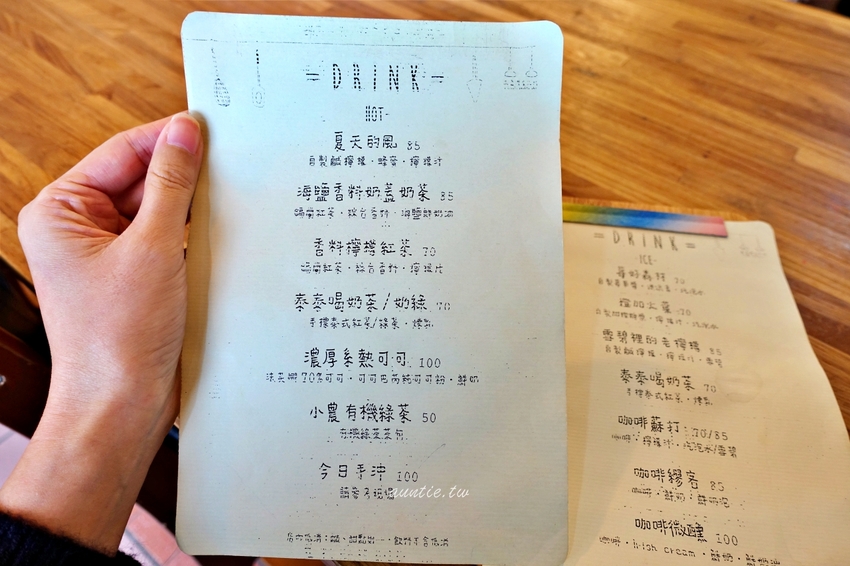 =DRINK=
HOT-
夏天的風 85
自製鹹檸檬·蜂蜜·檸檬汁
海鹽香料奶蓋奶茶 85
錫蘭紅茶·綜合香料·海鹽鮮奶油
香料檸檬紅茶 70
錫蘭紅茶·綜合香料·檸檬片
泰泰喝奶茶/奶綠 70
手標泰式紅茶/綠茶·煉乳
濃厚系熱可可 100
法芙娜70%可可·可可巴芮純可可粉·鮮奶
小農有機綠茶 50
有機綠茶茶包
今日手沖 100
auntie.tw
=DRINK=
-ICE-
70
70
雪碧裡的老檸檬 85
自製鹹檸檬·檸檬汁·雪碧
泰泰喝奶茶 70
手標泰式紅茶·煉乳
咖啡蘇打 70/85
咖啡·檸檬汁·汽泡水/雪碧
咖啡繆客 85
咖啡·鮮奶·鮮奶泡
咖啡微醺 100
咖啡·irish cream·鮮奶·鮮奶油